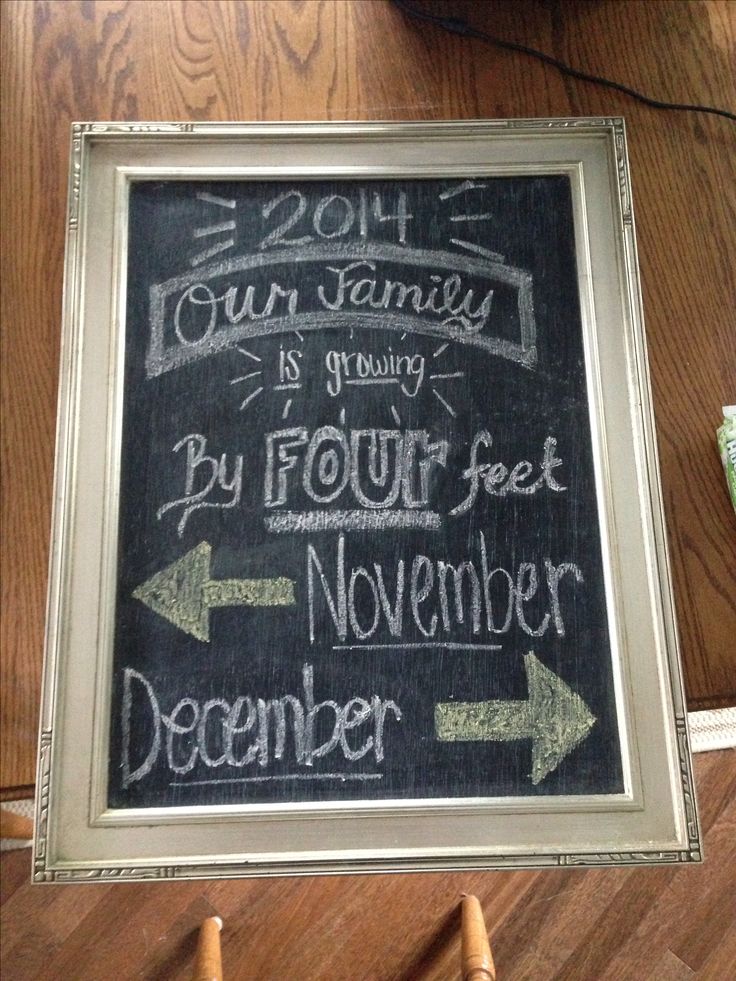 2014
Our Family
is growing
By FOUr feet
November
December